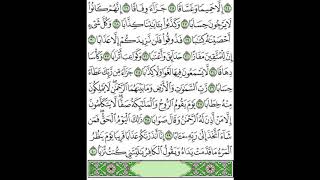 إِلَّا حَمِيمًا وَغَسَّاقًا ﴿٢٥﴾ جَزَآءً وِفَاقًا ﴿٢٦﴾ إِنَّهُمْ كَانُوا۟
لَا يَرْجُونَ حِسَابًا ﴿٢٧﴾ وَكَذَّبُوا۟ بِـَٔايَـٰتِنَا كِذَّابًا ﴿٢٨﴾ وَكُلَّ شَىْءٍ
أَحْصَيْنَـٰهُ كِتَـٰبًا ﴿٢٩﴾ فَذُوقُوا۟ فَلَن نَّزِيدَكُمْ إِلَّا عَذَابًا ﴿٣٠﴾
إِنَّ لِلْمُتَّقِينَ مَفَازًا ﴿٣١﴾ حَدَآئِقَ وَأَعْنَـٰبًا ﴿٣٢﴾ وَكَوَاعِبَ أَتْرَابًا ﴿٣٣﴾ وَكَأْسًا
دِهَاقًا ﴿٣٤﴾ لَّا يَسْمَعُونَ فِيهَا لَغْوًا وَلَا كِذَّٰبًا ﴿٣٥﴾ جَزَآءً مِّن رَّبِّكَ عَطَآءً
حِسَابًا ﴿٣٦﴾ رَّبِّ ٱلسَّمَـٰوَٰتِ وَٱلْأَرْضِ وَمَا بَيْنَهُمَا ٱلرَّحْمَـٰنِ لَا يَمْلِكُونَ
مِنْهُ خِطَابًا ﴿٣٧﴾ يَوْمَ يَقُومُ ٱلرُّوحُ وَٱلْمَلَـٰٓئِكَةُ صَفًّا لَّا يَتَكَلَّمُونَ
إِلَّا مَنْ أَذِنَ لَهُ ٱلرَّحْمَـٰنُ وَقَالَ صَوَابًا ﴿٣٨﴾ ذَٰلِكَ ٱلْيَوْمُ ٱلْحَقُّ فَمَن
شَآءَ ٱتَّخَذَ إِلَىٰ رَبِّهِۦ مَـَٔابًا ﴿٣٩﴾ إِنَّآ أَنذَرْنَـٰكُمْ عَذَابًا قَرِيبًا يَوْمَ يَنظُرُ
ٱلْمَرْءُ مَا قَدَّمَتْ يَدَاهُ وَيَقُولُ ٱلْكَافِرُ يَـٰلَيْتَنِى كُنتُ تُرَٰبًۢا ﴿٤٠﴾